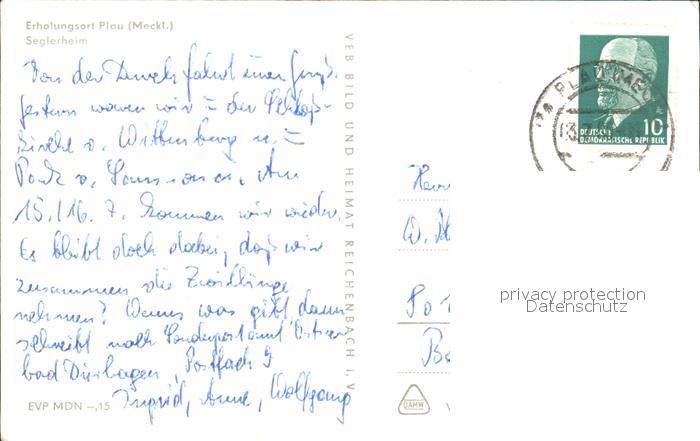 Erholungsort Plau (Meckl.)
Seglerheim
Von der Durchfahrt einen Gruß.
gestern waren wir in der Schloß-
kirche v. Wittenberg u. im
Park v. Sanssouci. Am
15./16. 7. kommen wir wieder.
Es bleibt doch dabei, daß wir
zusammen die Zwillinge
nehmen? Wenns was gibt dann
schreibt nach Sonderpostamt Ostsee
bad Dierhagen, Postfach 9
Ingrid, Anne, Wolfgang
EVP MDN –,15
VEB BILD UND HEIMAT REICHENBACH i. V.
PLAU (MECKL
10
DEUTSCHE
DEMOKRATISCHE REPUBLIK
Herrn
W.
privacy protection
Datenschutz
DAMW
V